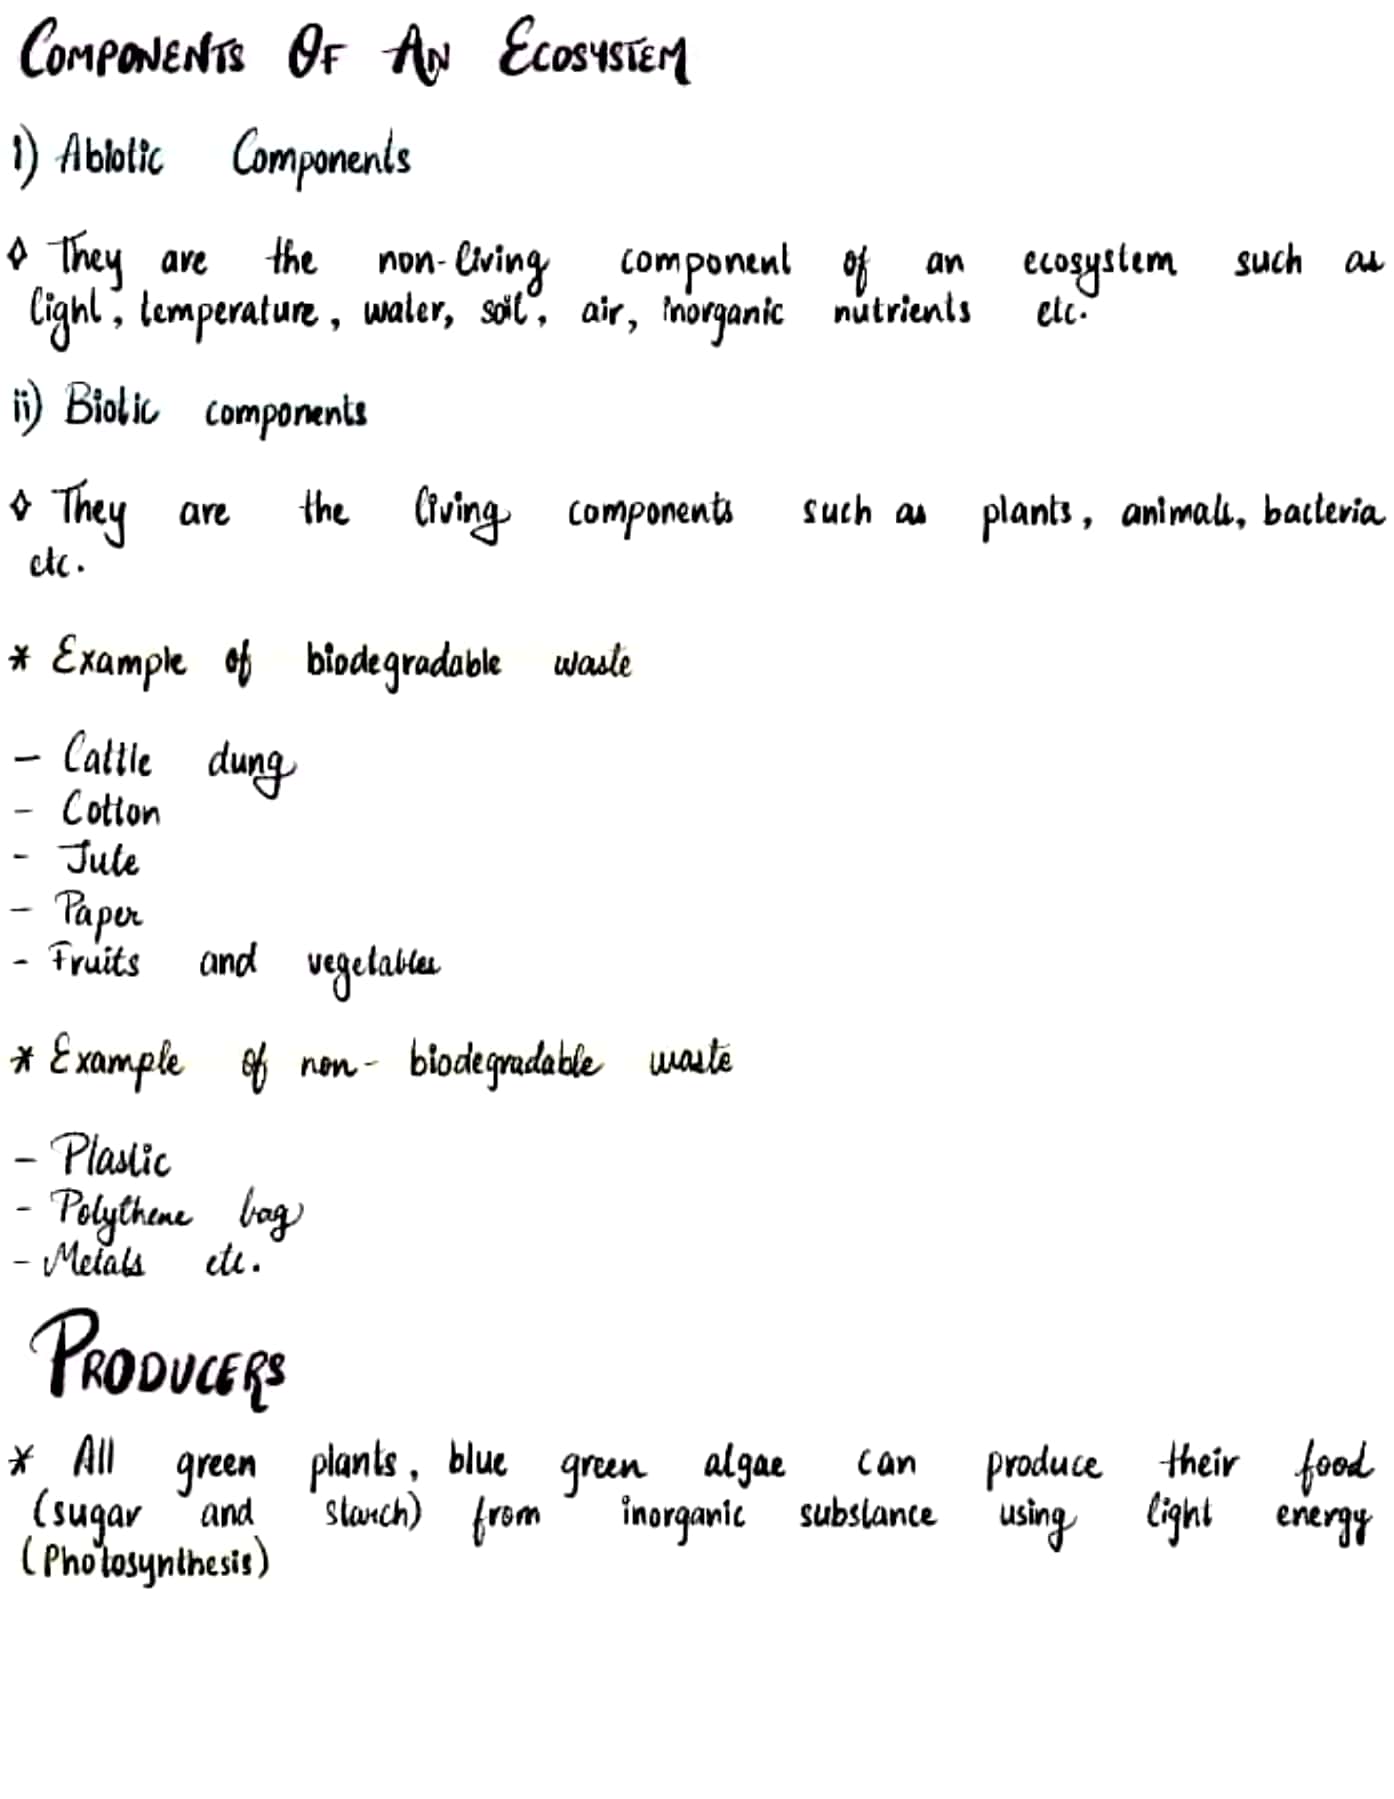 COMPONENTS OF AN ECOSYSTEM
i) Abiotic Components
◊ They are the non-living component of an ecosystem such as
light, temperature, water, soil, air, inorganic nutrients etc.
ii) Biotic components
◊ They are the living components such as plants, animals, bacteria
etc.
* Example of biodegradable waste
- Cattle dung
- Cotton
- Jute
- Paper
- Fruits and vegetables
* Example of non-biodegradable waste
- Plastic
- Polythene bag
- Metals etc.
PRODUCERS
* All green plants, blue green algae can produce their food
(sugar and starch) from inorganic substance using light energy
(Photosynthesis)